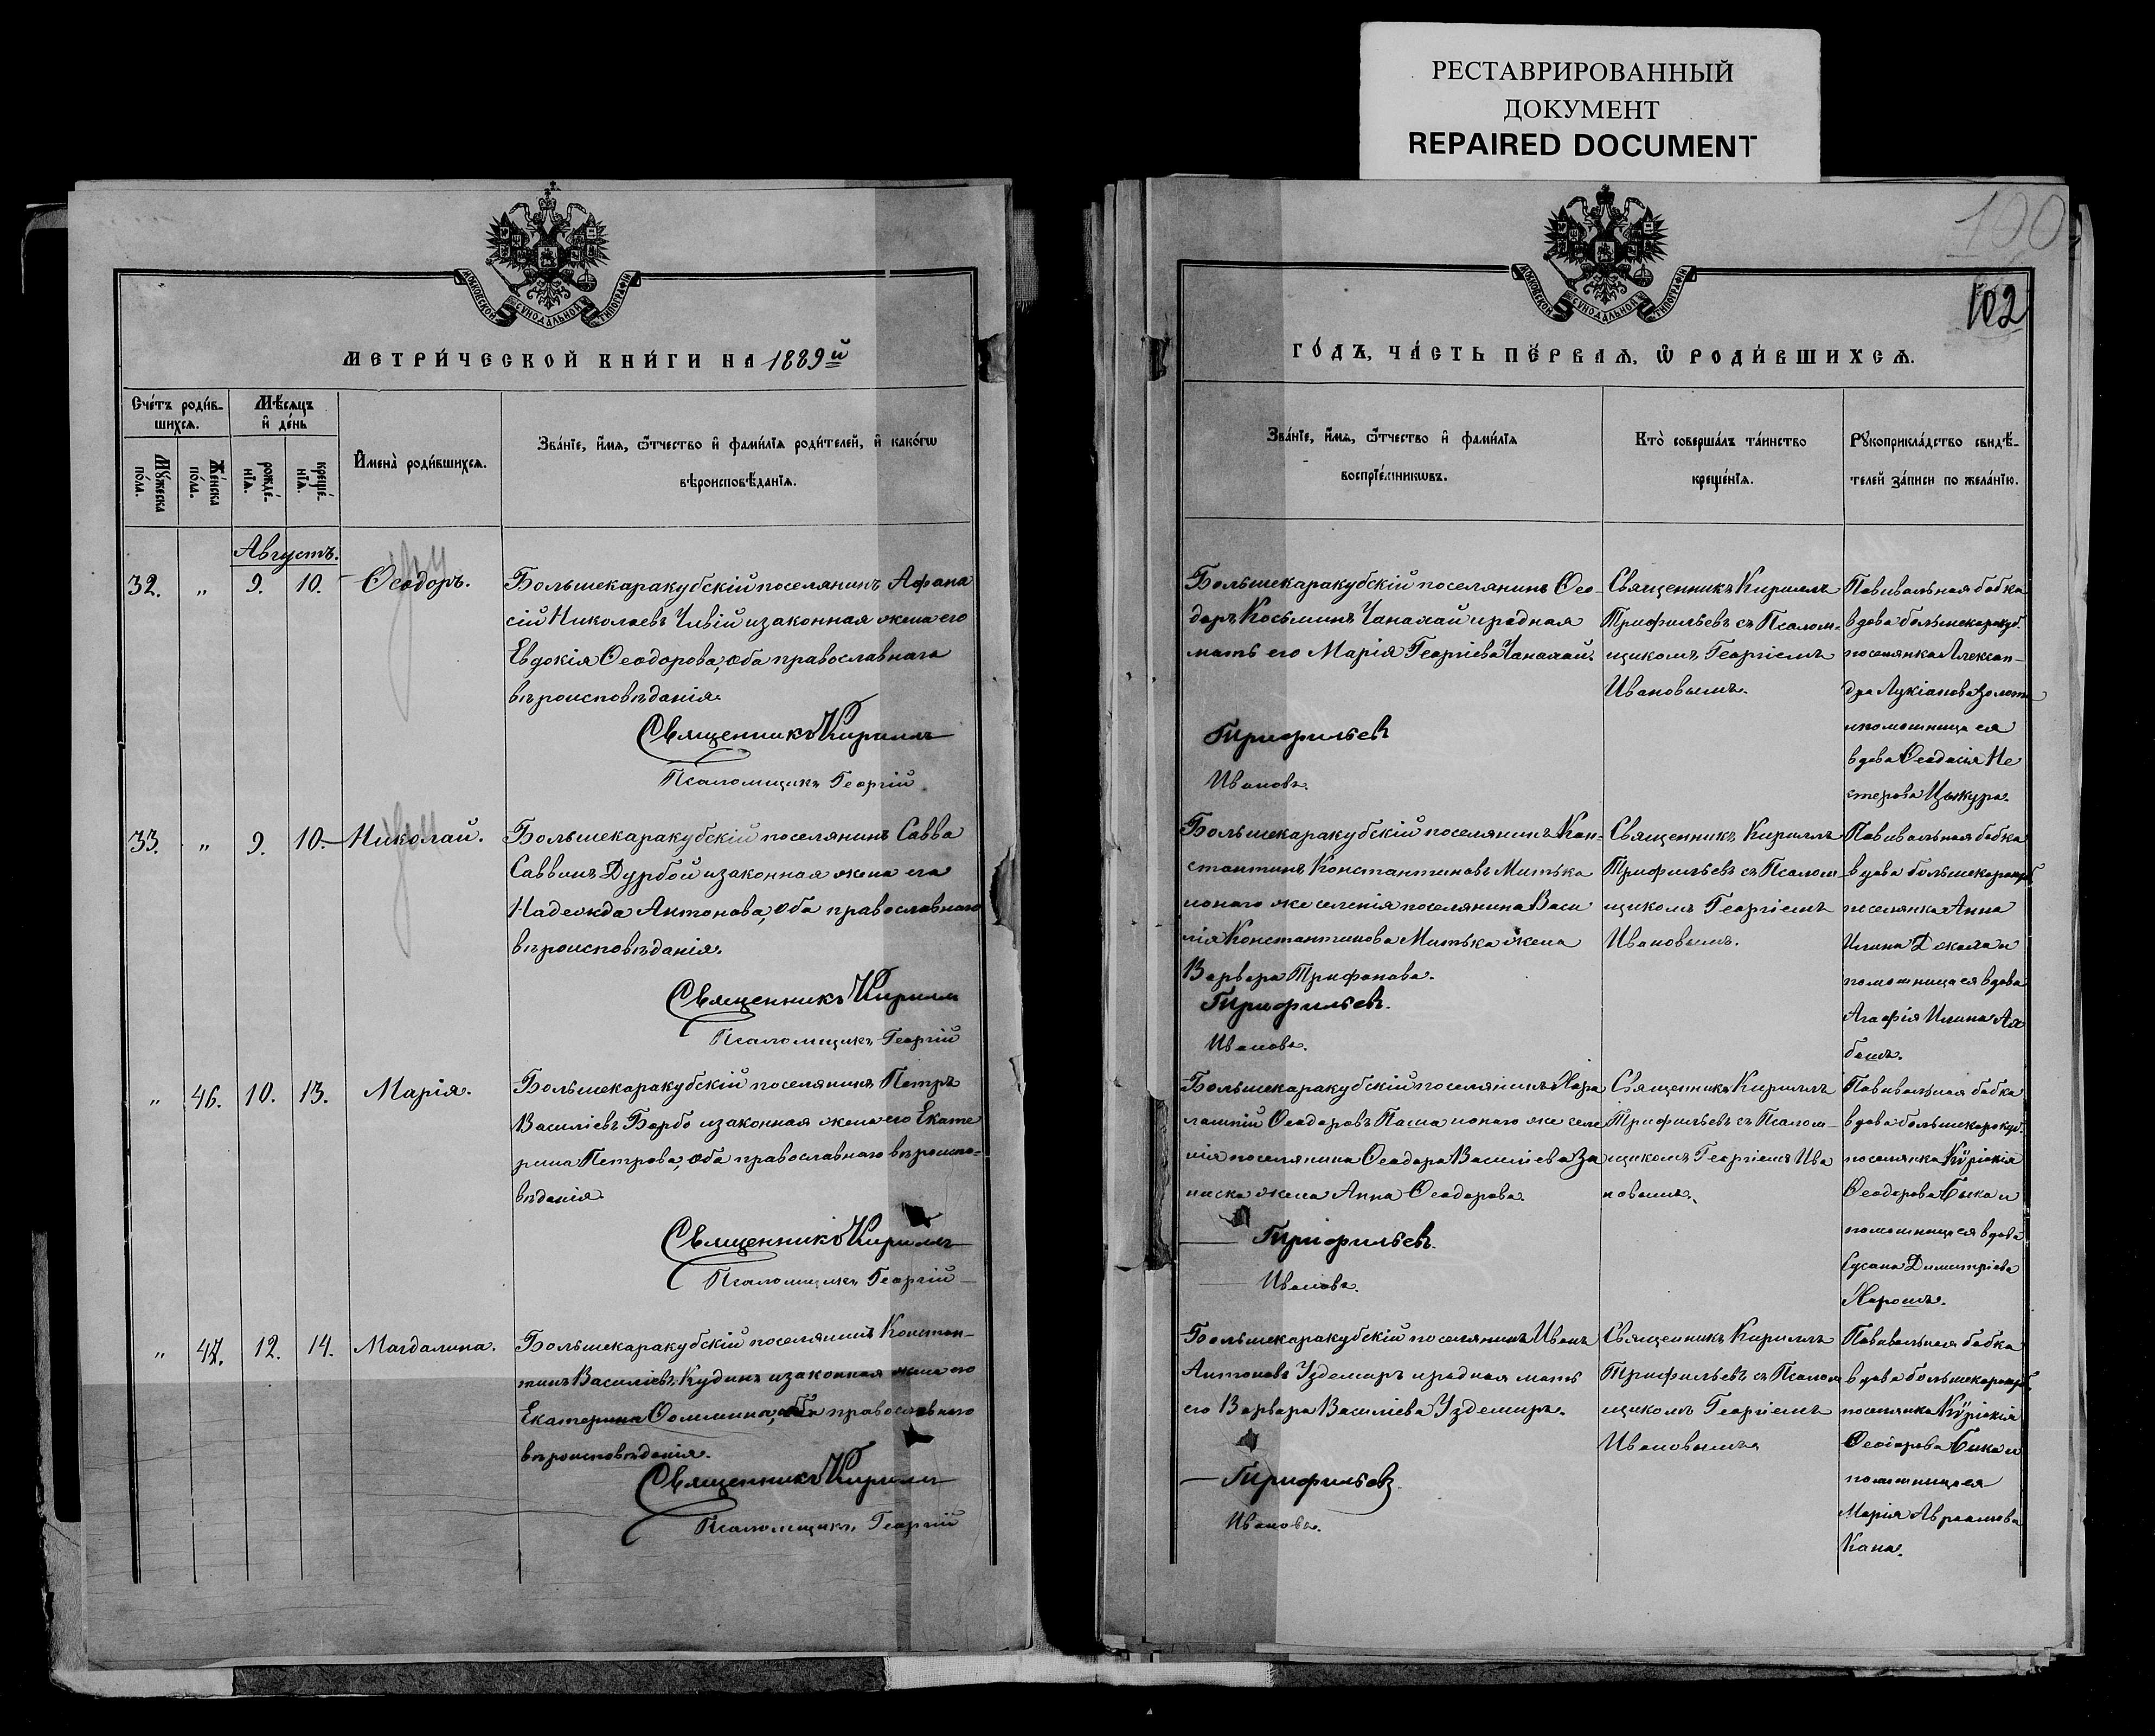 РЕСТАВРИРОВАННЫЙ
ДОКУМЕНТ
REPAIRED DOCUMENT
100
102
МОСКОВСКОЙ СУНОДАЛЬНОЙ ТИПОГРАФІИ
МЕТРИ́ЧЕСКОЙ КНИ́ГИ НА 1889й
Сче́тъ роди́в-
шихсѧ.
Мѣсѧцъ
и҆ де́нь
Мꙋ́жеска
по́ла.
Же́нска
по́ла.
рожде́-
нїѧ.
креще́-
нїѧ.
И҆мена̀ роди́вшихсѧ.
Зва́нїе, и҆́мѧ, ѻ҆́тчество и҆ фами́лїѧ роди́телей, и҆ како́гѡ
вѣроисповѣ́данїѧ.
Августъ.
32. „ 9. 10. Ѳеодоръ.
Большекаракубскій поселянинъ Афана
сій Николаевъ и законная жена его
Евдокія Ѳеодорова, оба православнаго
вѣроисповѣданія.
Священникъ Кириллъ
Псаломщикъ Георгій
33. „ 9. 10. Николай.
Большекаракубскій поселянинъ Савва
Саввинъ Дурбой и законная жена его
Надежда Антонова, оба православнаго
вѣроисповѣданія.
Священникъ Кириллъ
Псаломщикъ Георгій
„ 46. 10. 13. Марія.
Большекаракубскій поселянинъ Петръ
Василіевъ Барбо и законная жена его Екате
рина Петрова, оба православнаго вѣроиспо-
вѣданія.
Священникъ Кириллъ
Псаломщикъ Георгій
„ 47. 12. 14. Магдалина.
Большекаракубскій поселянинъ Констан-
тинъ Василіевъ Кудинъ и законная жена его
Екатерина Ѳомина, оба православнаго
вѣроисповѣданія.
Священникъ Кириллъ
Псаломщикъ Георгій
МОСКОВСКОЙ СУНОДАЛЬНОЙ ТИПОГРАФІИ
ГО́ДЪ, ЧА́СТЬ ПЕ́РВАѦ, Ѡ҆ РОДИ́ВШИХСѦ.
Зва́нїе, и҆́мѧ, ѻ҆́тчество и҆ фами́лїѧ
воспрїе́мникѡвъ.
Кто̀ соверша́лъ та́инство
креще́нїѧ.
Рꙋкоприкла́дство свидѣ́-
телей за́писи по жела́нїю.
Большекаракубскій поселянинъ Ѳео-
доръ Косьминъ Чанахай и родная
мать его Марія Георгіева Чанахай.
Трифильевъ
Ивановъ.
Священникъ Кириллъ
Трифильевъ съ Псалом-
щикомъ Георгіемъ
Ивановымъ.
Повивальная бабка
вдова большекаракуб.
поселянка Алексан-
дра Лукіанова
и помошница ея
вдова Ѳеодосія Не
стерова Цыкура.
Большекаракубскій поселянинъ Кон-
стантинъ Константиновъ Митька
и онаго же селенія поселянина Васи
лія Константинова Митька жена
Варвара Трифонова.
Трифильевъ.
Ивановъ.
Священникъ Кириллъ
Трифильевъ съ Псалом
щикомъ Георгіемъ
Ивановымъ.
Повивальная бабка
вдова большекаракуб.
поселянка Анна
Ильина и
помошница ея вдова
Агафія Ильина
Большекаракубскій поселянинъ Хара
лампій Ѳеодоровъ Паша и онаго же селе
нія поселянина Ѳеодора Василіева
жена Анна Ѳеодорова.
Трифильевъ.
Ивановъ.
Священникъ Кириллъ
Трифильевъ съ Псалом-
щикомъ Георгіемъ Ива
новымъ.
Повивальная бабка
вдова большекаракуб.
поселянка Кѵріакія
Ѳеодорова Быка и
помошница ея вдова
Сусана Димитріева
Большекаракубскій поселянинъ Иванъ
Антоновъ Уздемиръ и родная мать
его Варвара Василіева Уздемиръ.
Трифильевъ.
Ивановъ.
Священникъ Кириллъ
Трифильевъ съ Псалом
щикомъ Георгіемъ
Ивановымъ.
Повивальная бабка
вдова большекаракуб.
поселянка Кѵріакія
Ѳеодорова Бика и
помошница ея
Марія Авраамова
Кана.